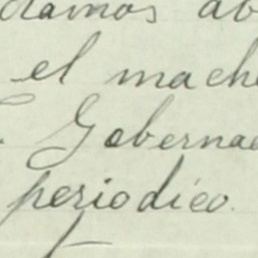 damos ab
el mache
. Goberna
periodico.